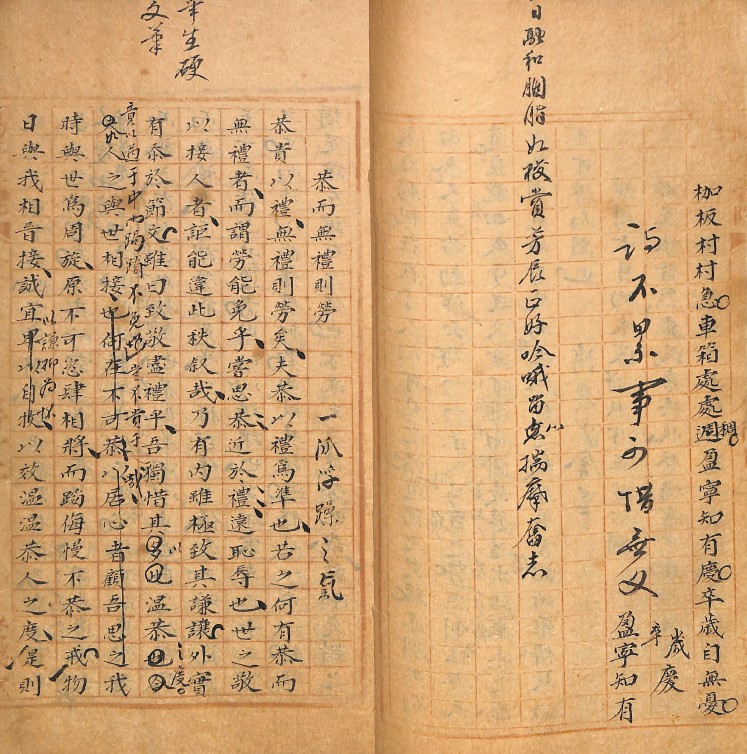 枷板村村急車箱處處週盈寧知有慶卒歲自無憂
稠
歲慶
卒
盈寧知有
詩不累事可惜無文
日融和胭脂如
賞芳辰
好吟哦
奮志
筆生硬
文筆
恭而無禮則勞
一派浮躁之氣
恭貴以禮無禮則勞矣夫恭以禮為準也若之何有恭而
無禮者而謂勞能免乎嘗思恭近於禮遠恥辱也世之敬
以接人者詎能違此秩叙哉乃有內雖極致其謙讓外實
有忝於節文雖曰致敬盡禮乎吾獨惜其
溫恭
人之與世相接也何在不可恭以居心者顧吾思之我
時與世為周旋原不可恣肆相將而蹈侮慢不恭之戒物
以謙抑為懷
日與我相晉接誠宜卑以自牧以效溫溫恭人之度是則